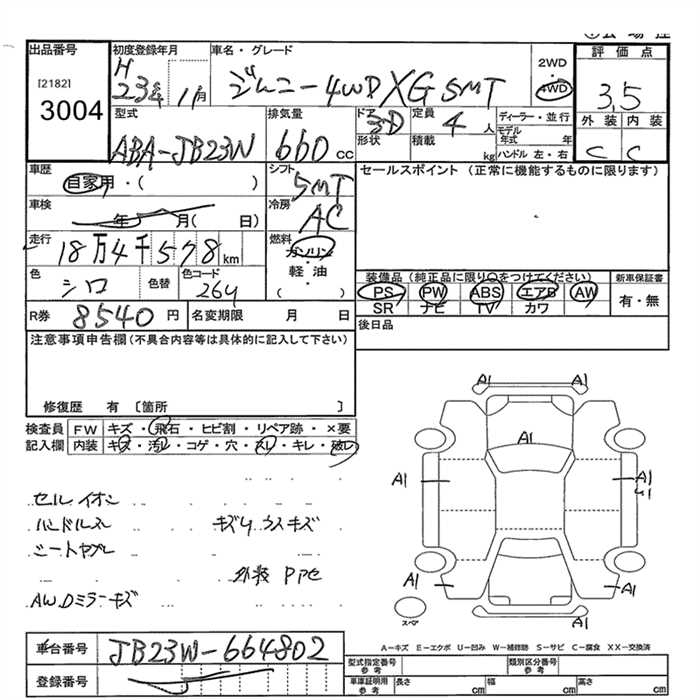 出品番号
[2182]
3004
初度登録年月
H
23年 11月
車名・グレード
ジムニー 4WD XG 5MT
2WD
4WD
評価点
3,5
外装 内装
C C
型式
ABA-JB23W
排気量
660 CC
ドア
3D
形状
定員
4 人
積載
kg
ディーラー・並行
モデル
年式 年
ハンドル 左・右
車歴
自家用・( )
シフト
5MT
セールスポイント (正常に機能するものに限ります)
車検
年 月( 日)
冷房
AC
走行
18万4千578km
燃料
ガソリン
軽油
( )
色
シロ
色替
色コード
26U
装備品 (純正品に限り○をつけてください)
PS PW ABS エアB AW
SR ナビ TV カワ
新車保証書
有・無
R券 8540 円
名変期限 月 日
後日品
注意事項申告欄(不具合内容等は具体的に記入して下さい)
修復歴 有 〔箇所 〕
検査員
記入欄
FW キズ・飛石・ヒビ割・リペア跡・×要
内装 キズ・汚レ・コゲ・穴・スレ・キレ・破レ
セルイオン
ハンドルスレ キズU ウスキズ
シートヤブレ
外装 PPセ
AW.Dミラーキズ
A1 A1
A1
A1 A1
U1
A1 A1
A1
スペア
A-キズ E-エクボ U-凹み W-補修跡 S-サビ C-腐食 XX-交換済
車台番号 JB23W-664802
登録番号
型式指定番号
参考
類別区分番号
参考
車庫証明用
参考
長さ cm 幅 cm 高さ cm